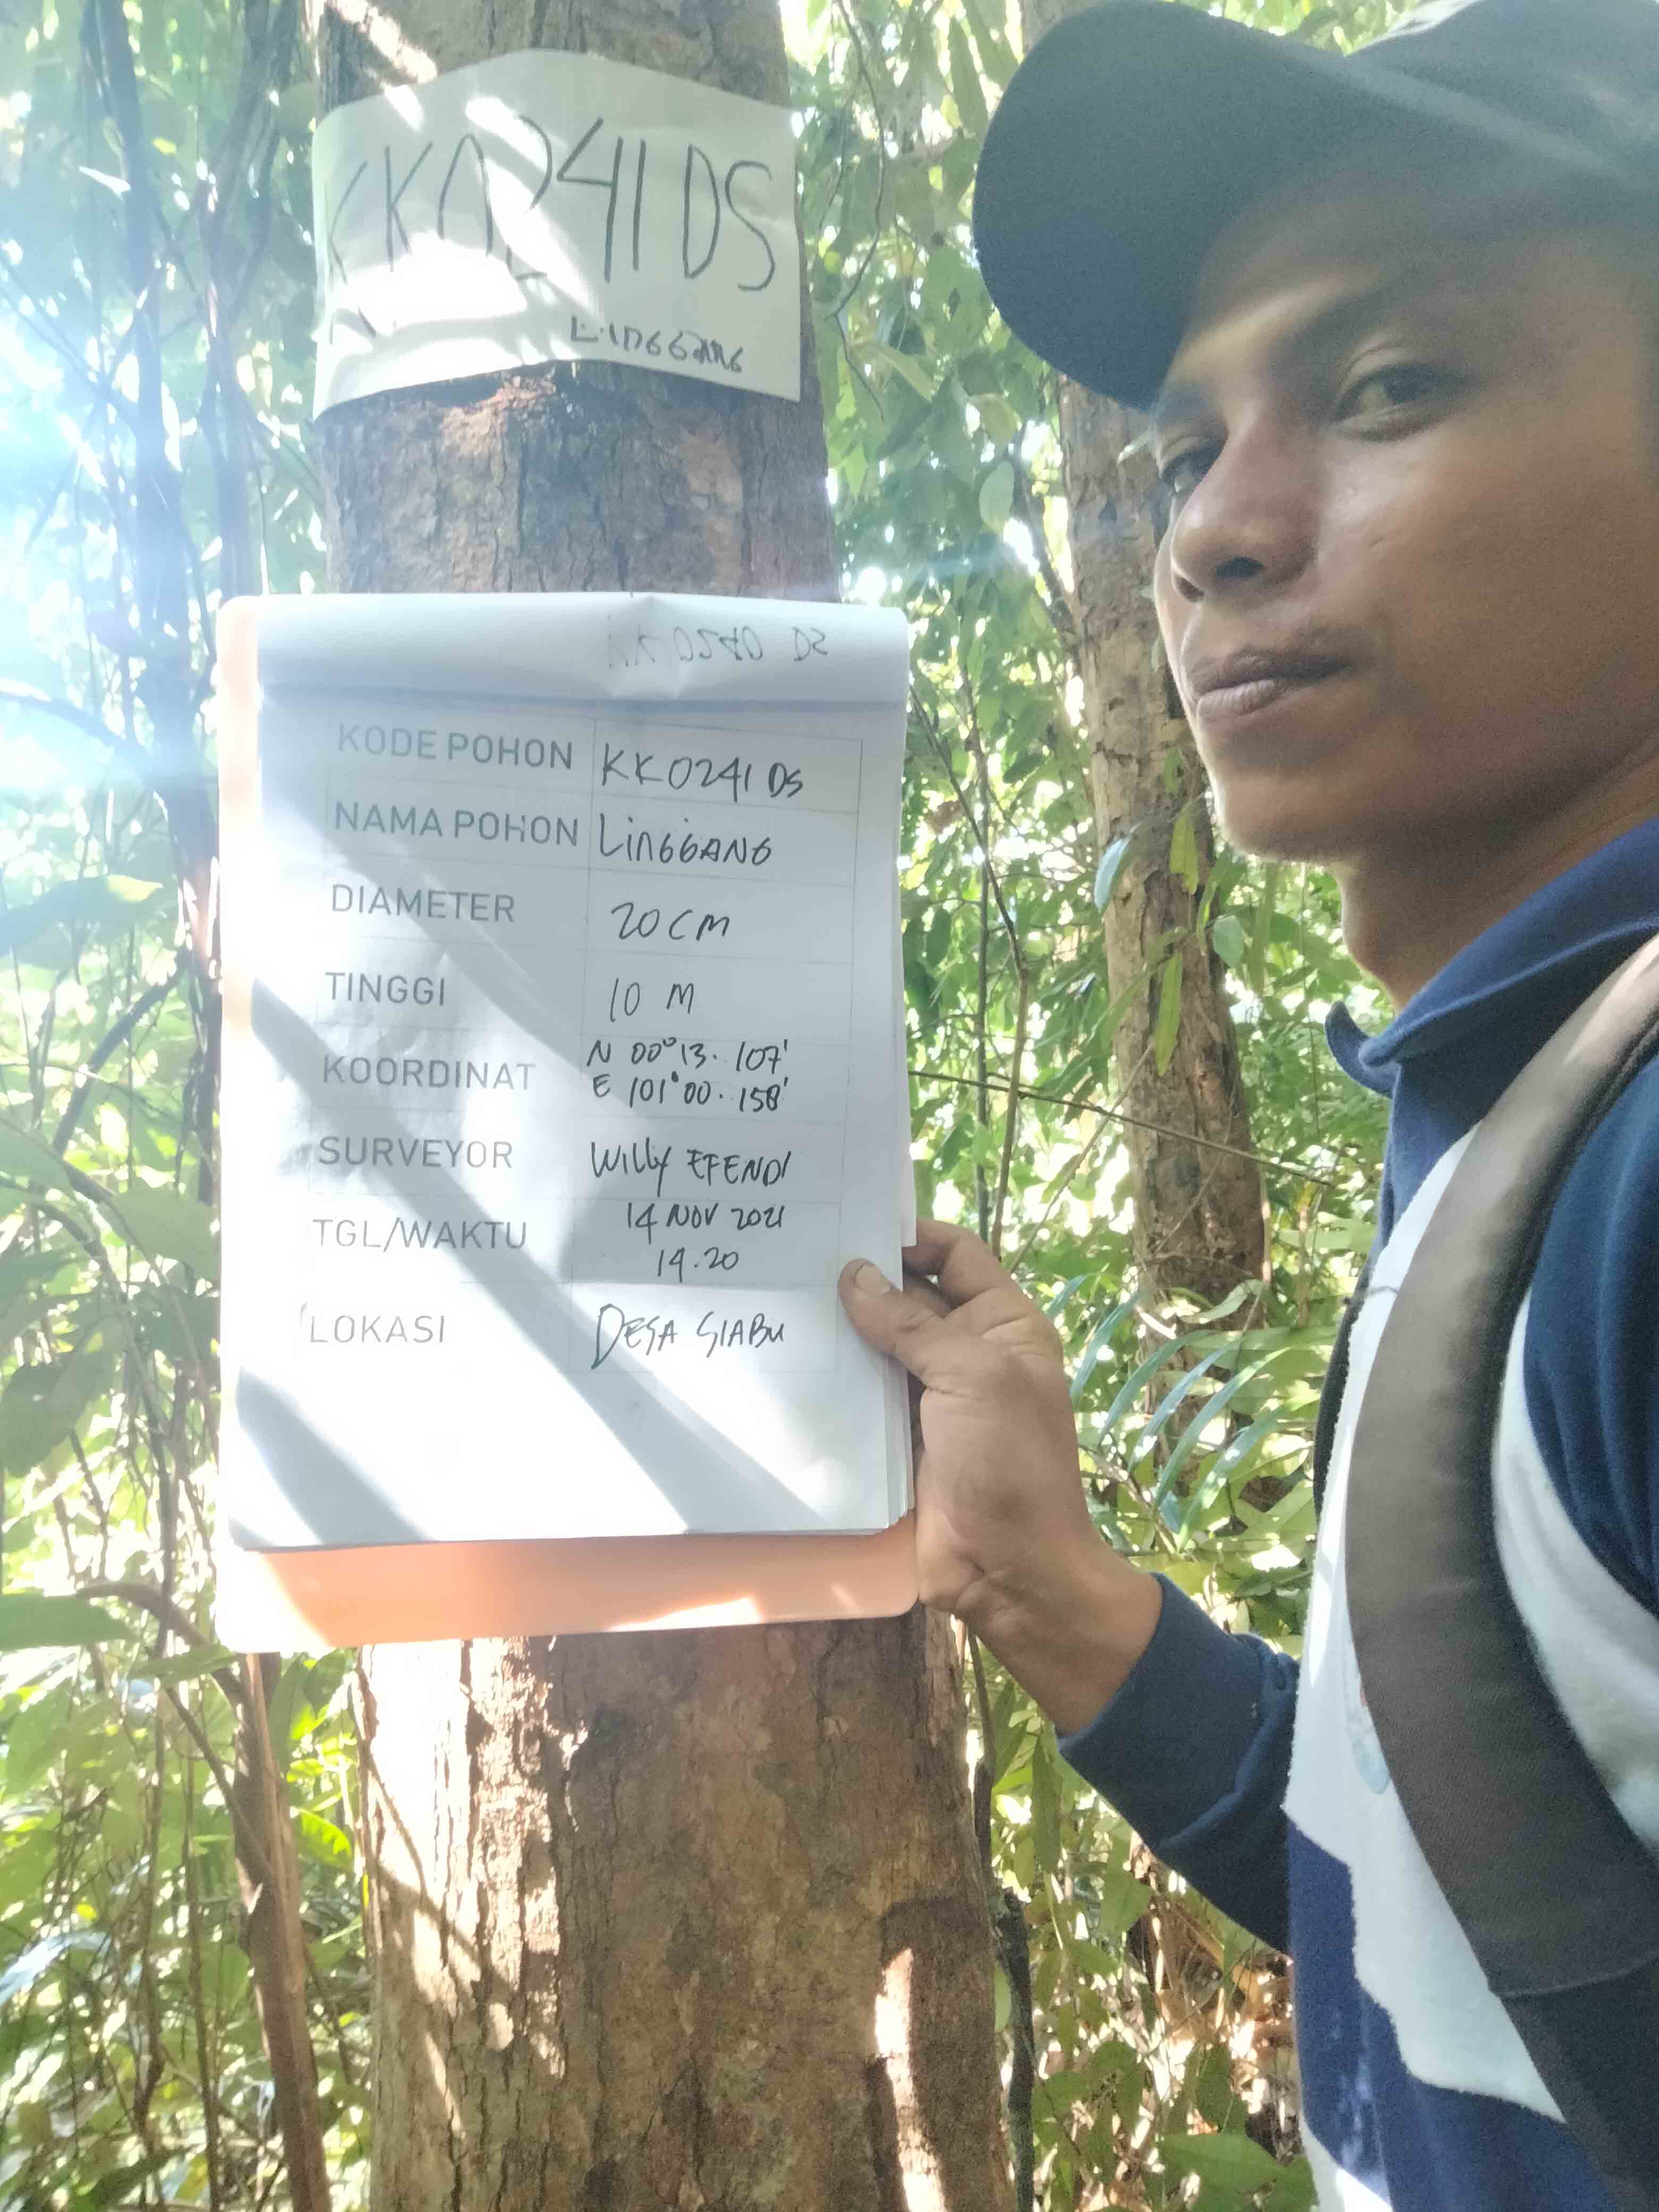 KK0241 DS
LINGGANG
KK 0240 DS
KODE POHON KK0241 DS
NAMA POHON LINGGANG
DIAMETER 20 CM
TINGGI 10 M
KOORDINAT N 00°13.107'
E 101°00.158'
SURVEYOR Willy EFENDI
TGL/WAKTU 14 NOV 2021
14.20
LOKASI DESA SIABU